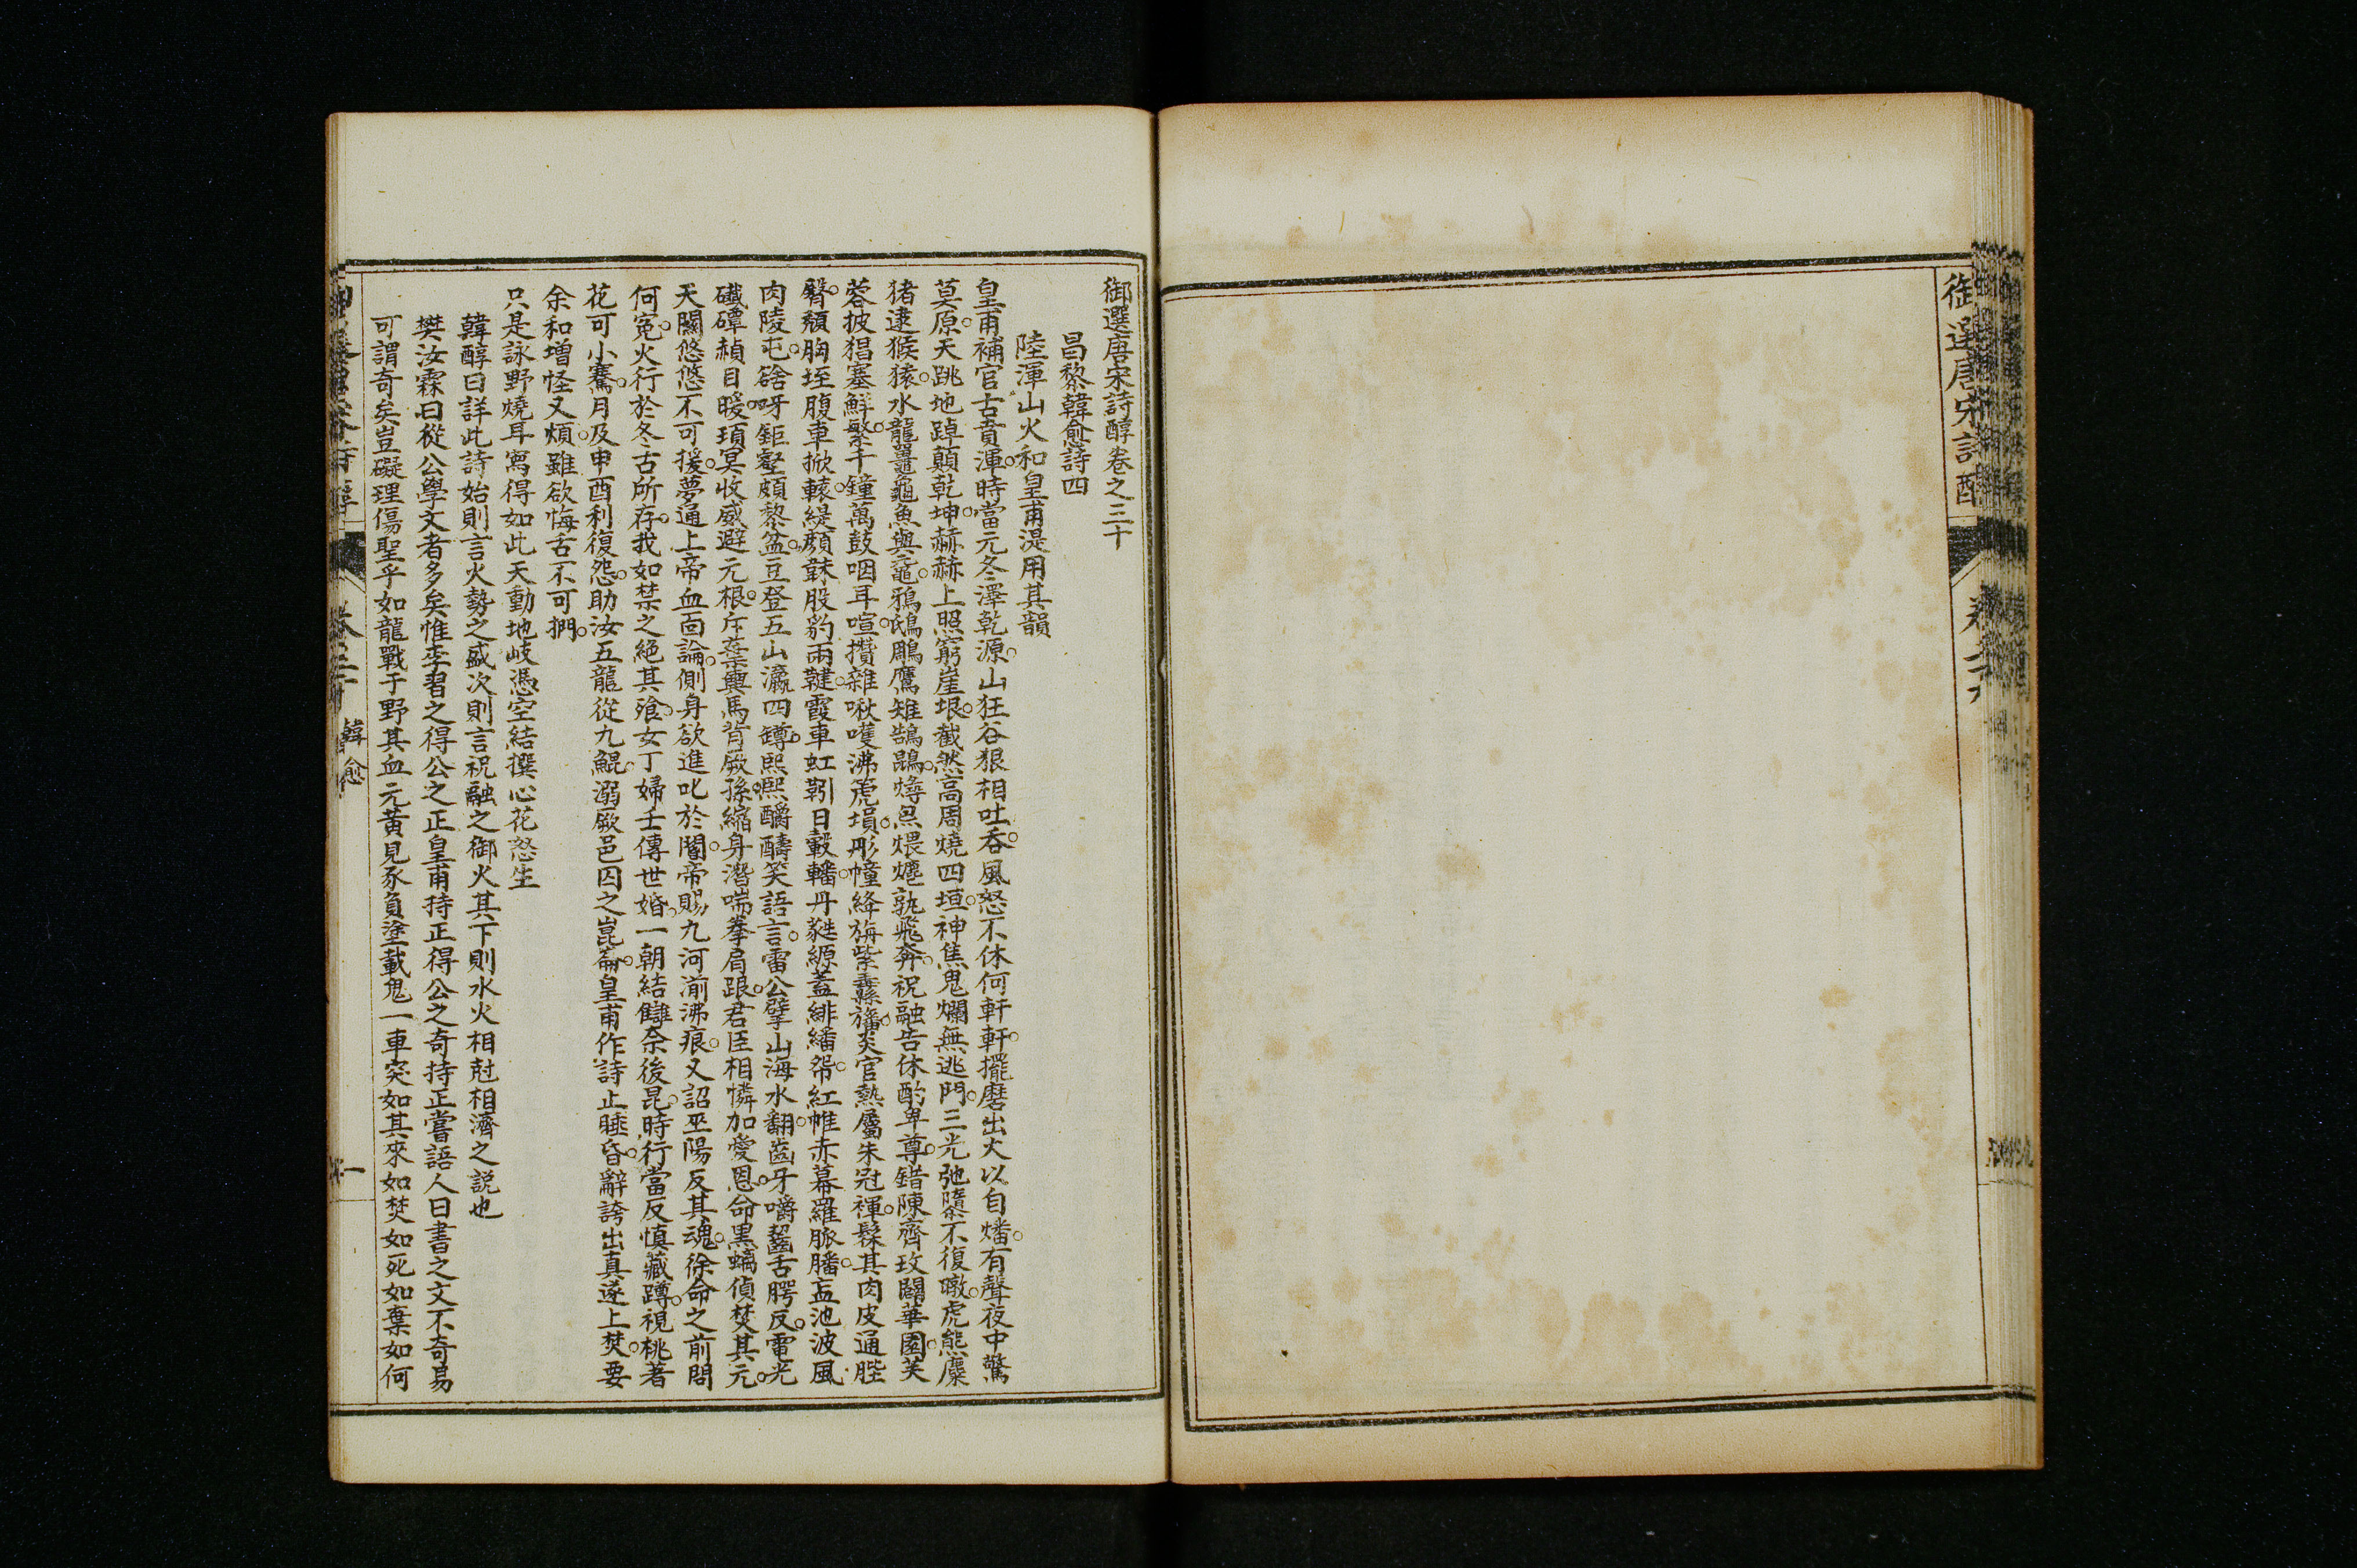 御選唐宋詩醇
御選唐宋詩醇卷之三十
昌黎韓愈詩四
陸渾山火和皇甫湜用其韻
皇甫補官古賁渾時當元冬澤乾源山狂谷狠相吐呑風怒不休何軒軒擺磨出火以自燔有聲夜中驚
莫原天跳地踔顛乾坤赫赫上照窮崖垠截然高周燒四垣神焦鬼爛無逃門三光弛隳不復暾虎熊麋
猪逮猴猿水龍鼉龜魚與黿鴉鴟鵰鷹雉鵠鵾燖炰煨爊孰飛奔祝融告休酌卑尊錯陳齊玫闢華園芙
蓉披猖塞鮮繁千鐘萬鼓咽耳喧攢雜啾嚄沸箎塤彤幢絳旃紫纛旛炎官熱屬朱冠褌髹其肉皮通䏶
臀頹胸垤腹車掀轅緹顏韎股豹兩鞬霞車虹靷日轂轓丹蕤縓蓋緋繙帤紅帷赤幕羅脤膰衁池波風
肉陵屯谽呀鉅壑頗黎盆豆登五山瀛四罇熙熙釂醻笑語言雷公擘山海水翻齒牙嚼齧舌腭反電光
礮磹赪目暖頊冥收威避元根斥棄輿馬背厥孫縮身潛喘拳肩跟君臣相憐加愛恩命黑螭偵焚其元
天關悠悠不可援夢通上帝血面論側身欲進叱於閽帝賜九河湔涕痕又詔巫陽反其魂徐命之前問
何寃火行於冬古所存我如禁之絕其飱女丁婦壬傳世婚一朝結讎奈後昆時行當反慎藏蹲視桃著
花可小騫月及申酉利復怨助汝五龍從九鯤溺厥邑囚之崑崙皇甫作詩止睡昏辭誇出真遂上焚要
余和增怪又煩雖欲悔舌不可捫
只是詠野燒耳寫得如此天動地岐憑空結撰心花怒生
韓醇曰詳此詩始則言火勢之盛次則言祝融之御火其下則水火相尅相濟之説也
樊汝霖曰從公學文者多矣惟李習之得公之正皇甫持正得公之奇持正嘗語人曰書之文不奇易
可謂奇矣豈礙理傷聖乎如龍戰于野其血元黃見豕負塗載鬼一車突如其來如焚如死如棄如何
韓愈
一